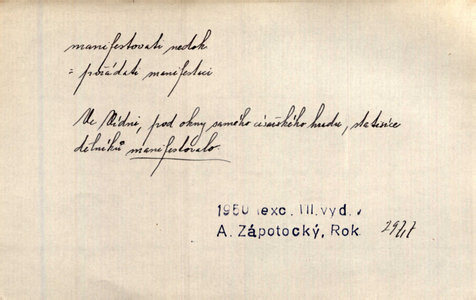 manifestovati nedok
= pořádati manifestaci
Ve Vídni, pod okny samého císařského hradu, statisíce
dělníků manifestovalo.
1950 (exc. III. vyd.)
A. Zápotocký, Rok